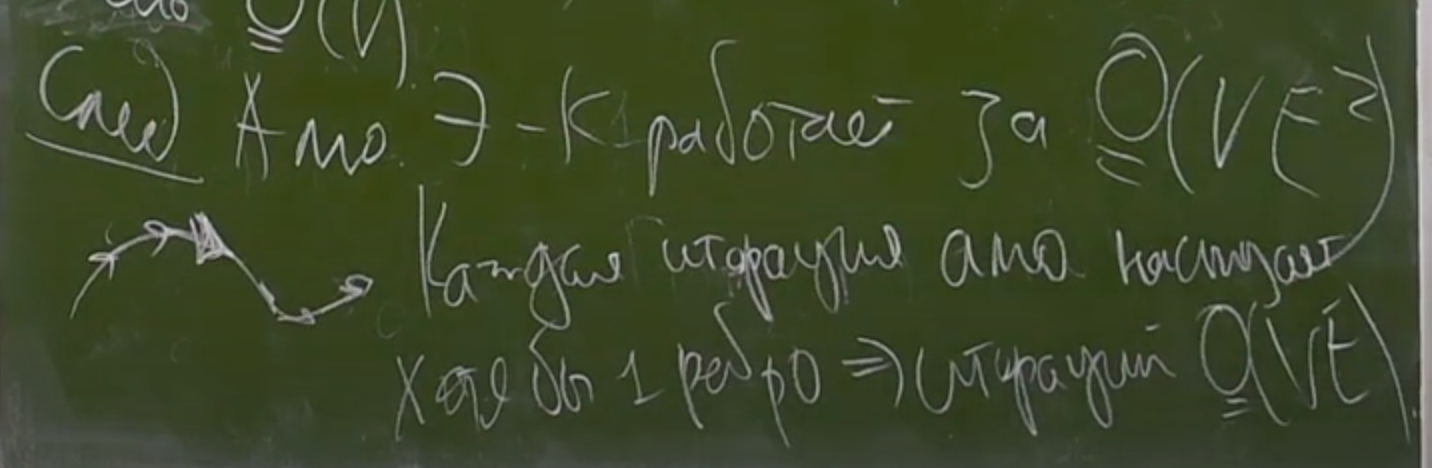 O(V).
След Алго. Э-К работает за O(VE²)
Каждая итерация алго насыщает
хотя бы 1 ребро => итераций O(VE).